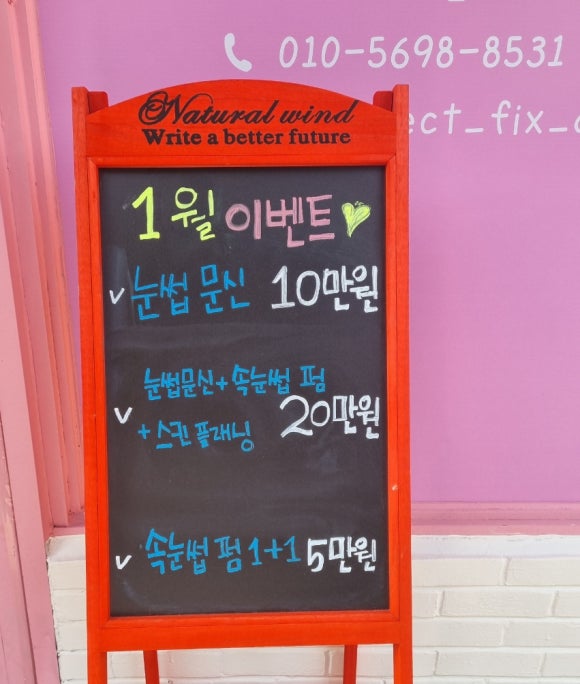 010-5698-8531
ect_fix_
Natural wind
Write a better future
1월 이벤트
✓ 눈썹 문신 10만원
눈썹문신+속눈썹 펌
✓ 20만원
+스킨 플래닝
✓ 속눈썹 펌 1+1 5만원